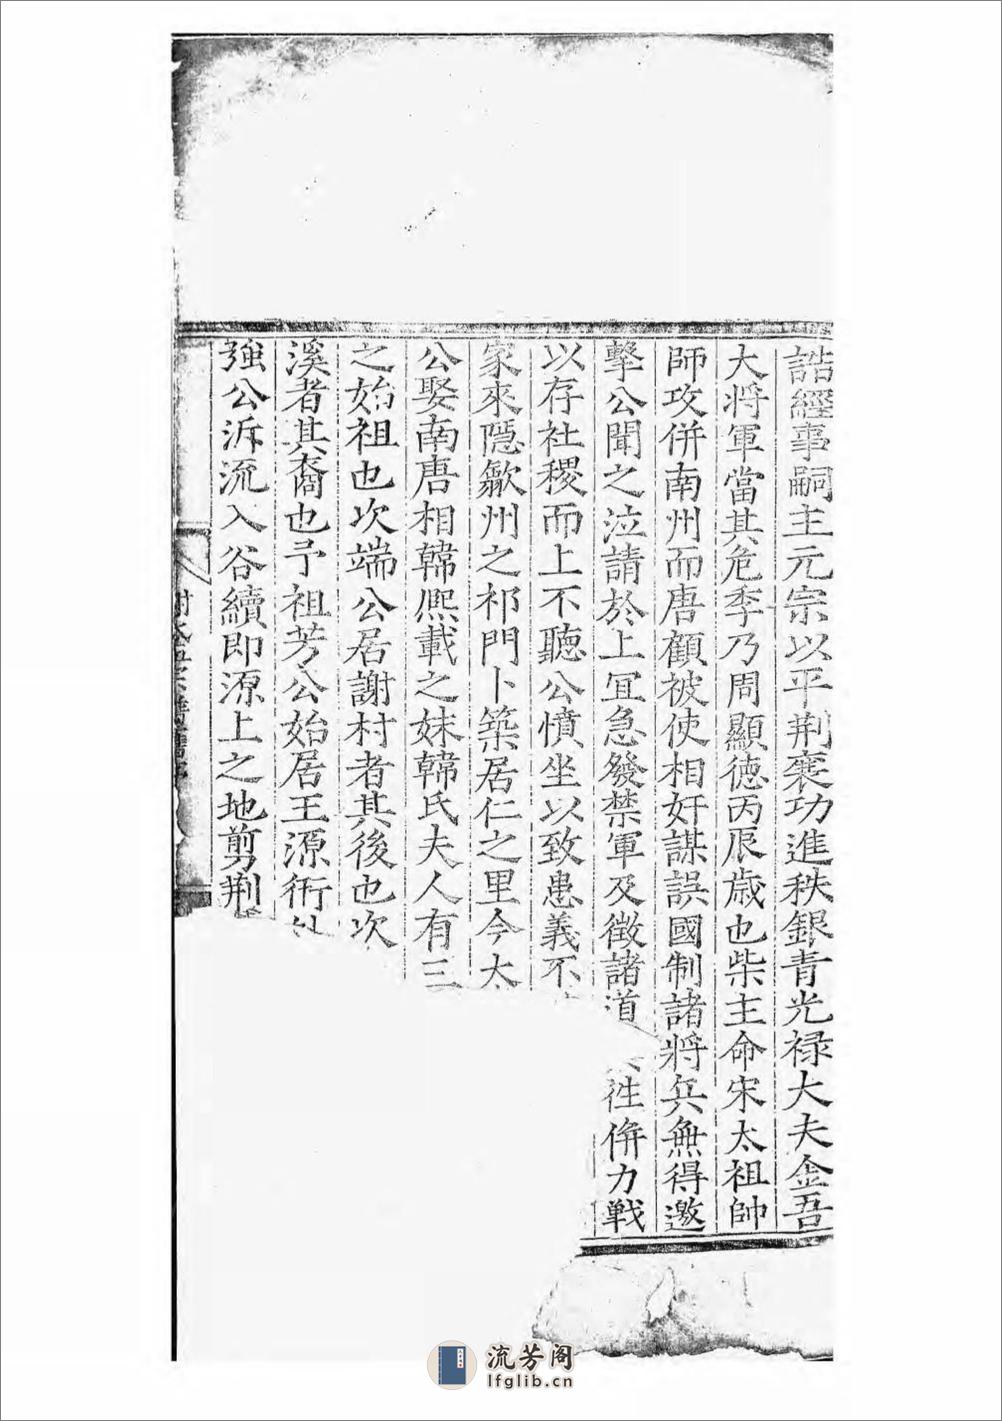 誥經事嗣主元宗以平荆襄功進秩銀青光禄大夫金吾
大将軍當其危季乃周顯德丙辰歲也柴主命宋太祖帥
師攻併南州而唐顧被使相奸謀誤國制諸將兵無得邀
擊公聞之泣請於上冝急發禁軍及徵諸道兵往併力戦
以存社稷而上不聽公憤坐以致患義不
家來隱歙州之祁門卜築居仁之里今太
公娶南唐相韓熈載之妹韓氏夫人有三
之始祖也次端公居謝村者其後也次
溪者其裔也予祖芳公始居王源術
強公泝流入谷續即源上之地剪荆
流芳阁
lfglib.cn